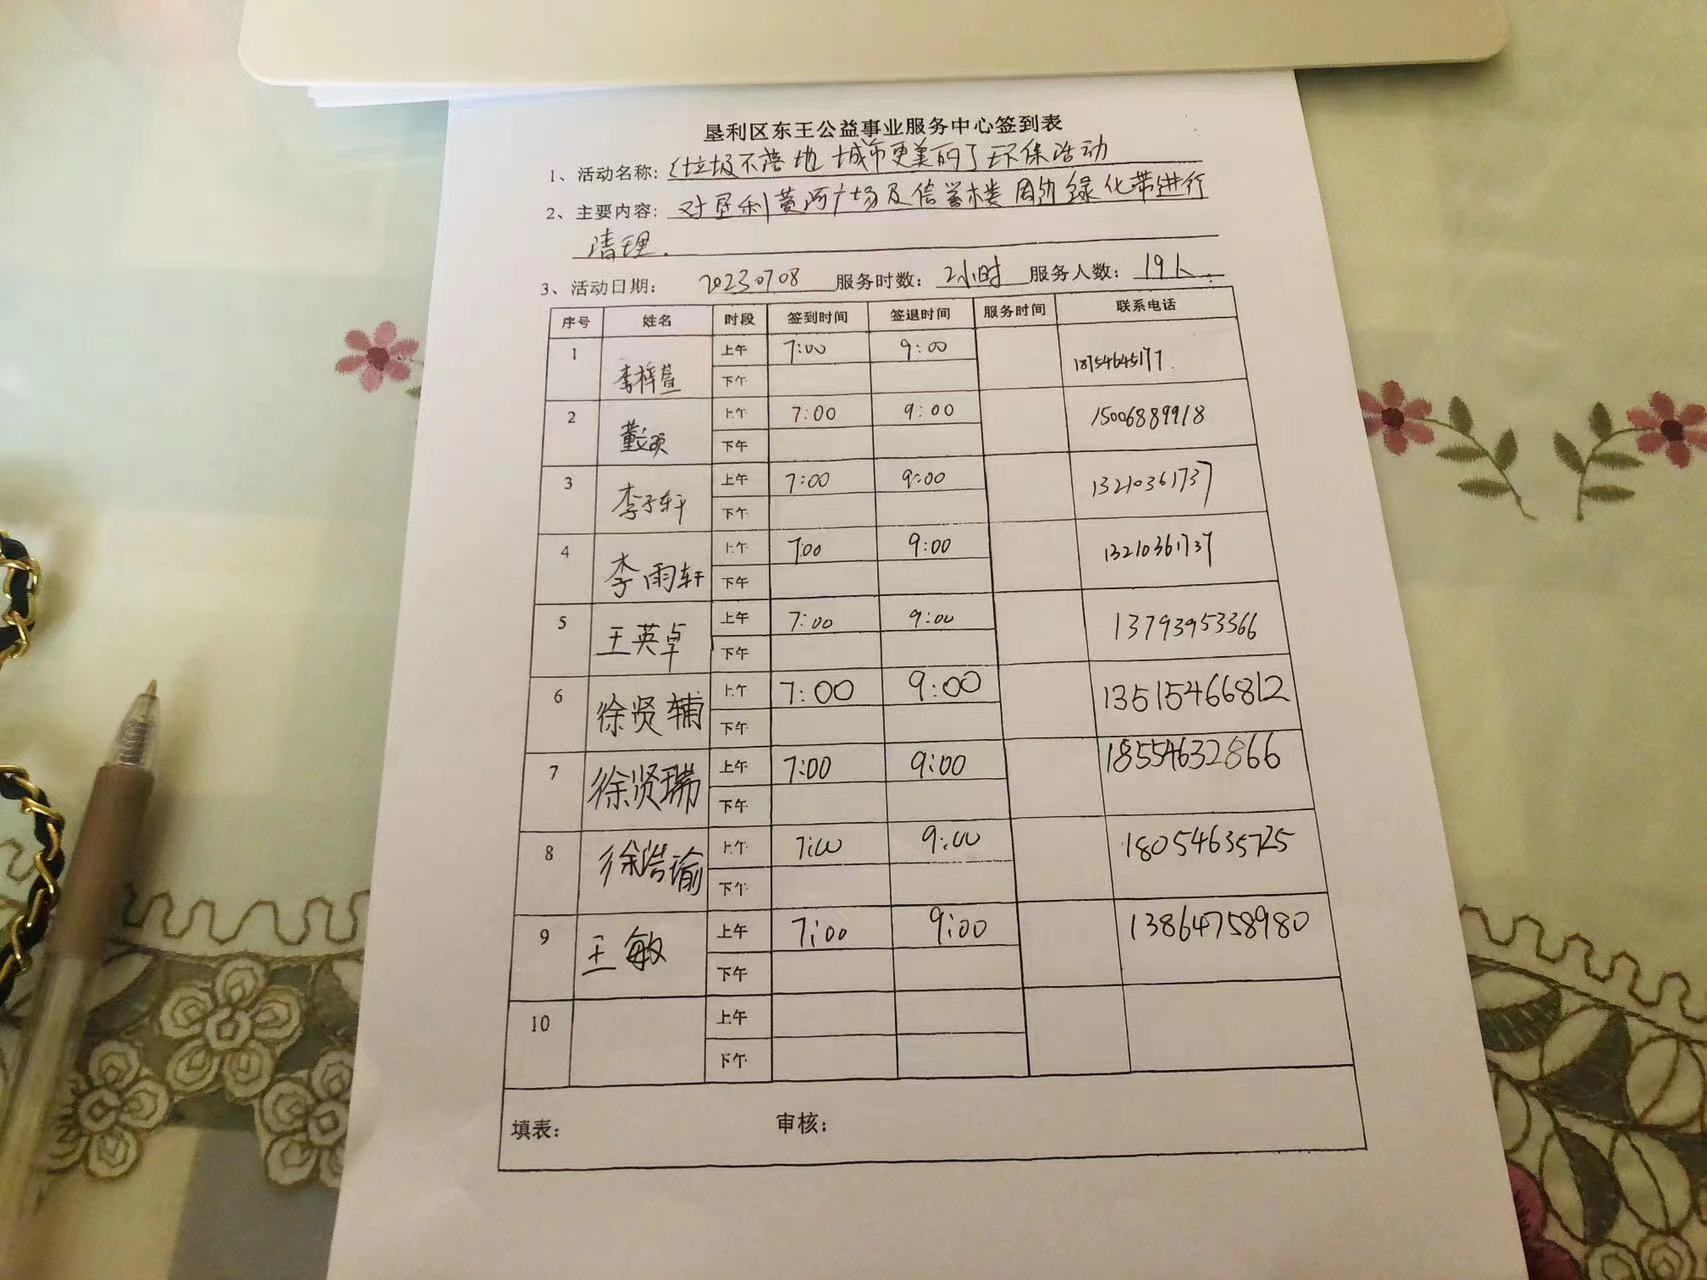 垦利区东王公益事业服务中心签到表
1、活动名称: 垃圾不落地 城市更美丽了环保活动
2、主要内容: 对垦利黄河广场及信誉楼周边绿化带进行
清理.
3、活动日期: 20230708 服务时数: 2小时 服务人数: 19人.
序号 姓名 时段 签到时间 签退时间 服务时间 联系电话
1 李梓萱 上午 7:00 9:00 18754645177.
下午
2 上午 7:00 9:00 15006889918
下午
3 李子轩 上午 7:00 9:00 13210361737
下午
4 李雨轩 上午 700 9:00 13210361737
下午
5 王英卓 上午 7:00 9:00 13793953366
下午
6 徐贤辅 上午 7:00 9:00 13515466812
下午
7 徐贤瑞 上午 7:00 9:00 18554632866
下午
8 徐浩瑜 上午 7:00 9:00 18054635725
下午
9 王敏 上午 7:00 9:00 13864758980
下午
10 上午
下午
填表: 审核: